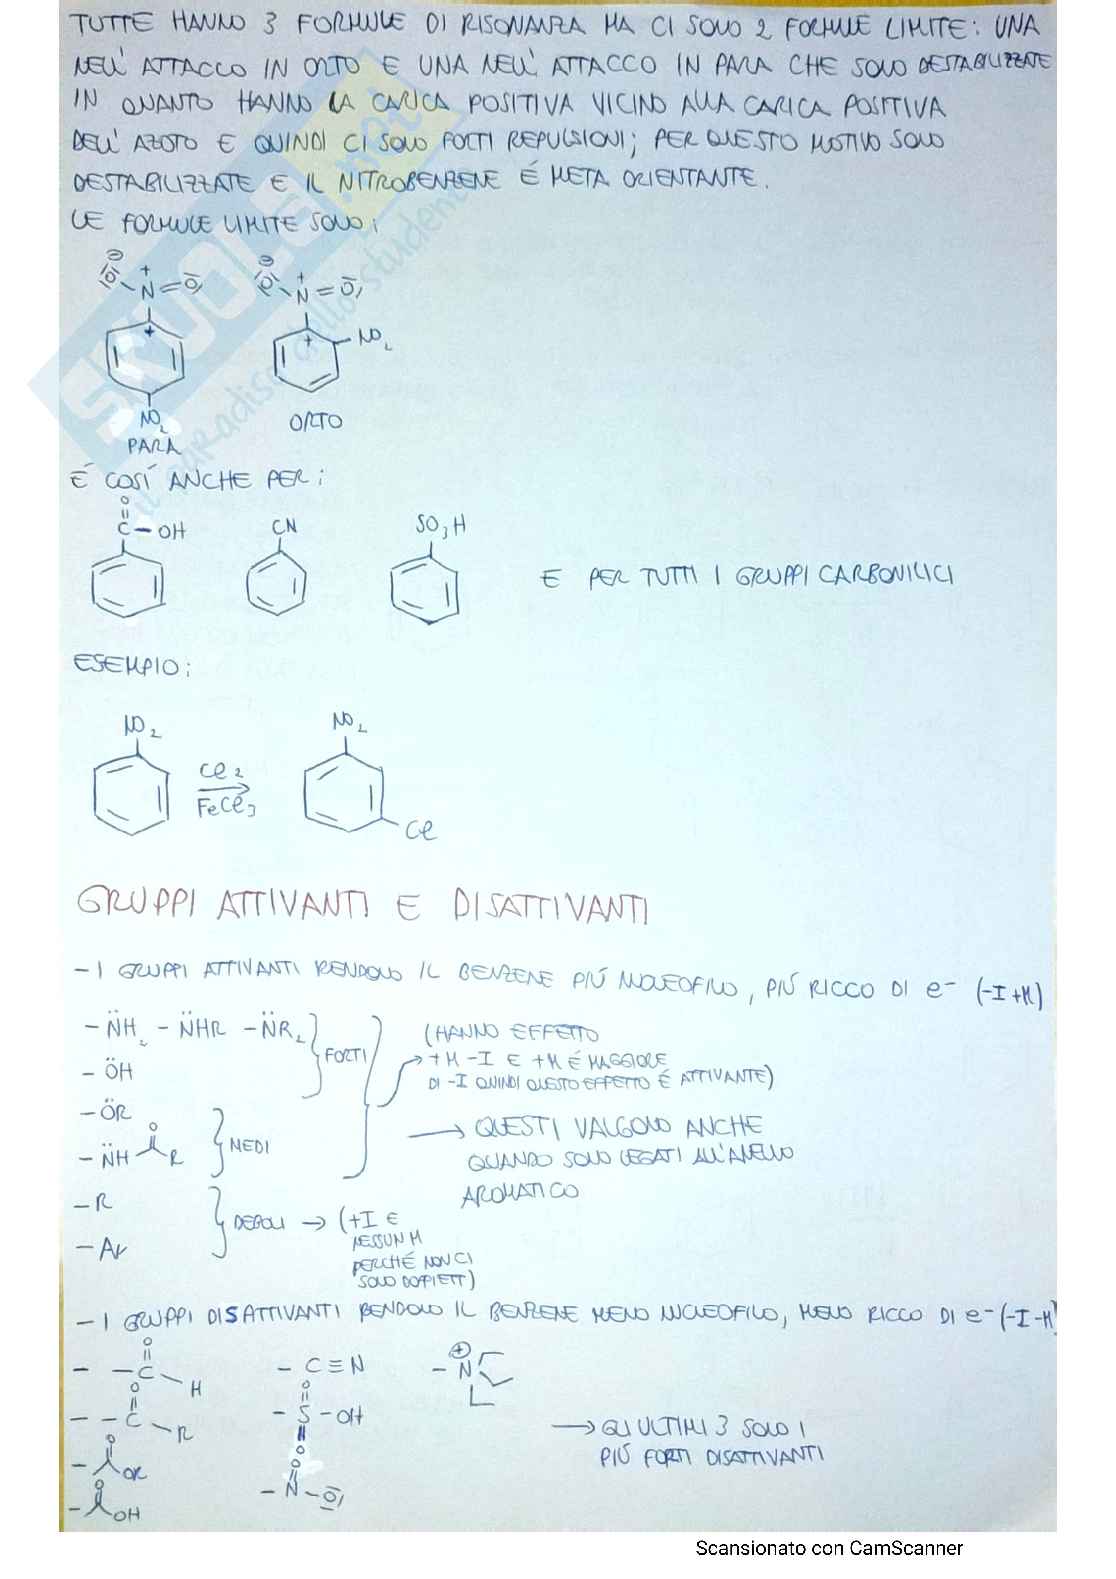 TUTTE HANNO 3 FORMULE DI RISONANZA MA CI SONO 2 FORMULE LIMITE: UNA
NELL'ATTACCO IN ORTO E UNA NELL'ATTACCO IN PARA CHE SONO DESTABILIZZATE
IN QUANTO HANNO LA CARICA POSITIVA VICINO ALLA CARICA POSITIVA
DELL'AZOTO E QUINDI CI SONO FORTI REPULSIONI; PER QUESTO MOTIVO SONO
DESTABILIZZATE E IL NITROBENZENE É META ORIENTANTE.
LE FORMULE LIMITE SONO:
⊖ O - N + = O   ⊖ O - N + = O
+   + NO2
NO2
PARA   ORTO
É COSÍ ANCHE PER:
O
C - OH   CN   SO3H
E PER TUTTI I GRUPPI CARBONILICI
ESEMPIO:
NO2   NO2
Cl2
FeCl3
Cl
GRUPPI ATTIVANTI E DISATTIVANTI
- I GRUPPI ATTIVANTI RENDONO IL BENZENE PIÚ NUCLEOFILO, PIÚ RICCO DI e- (-I+M)
- NH2 - NHR - NR2 } FORTI
- OH
(HANNO EFFETTO
+M -I E +M É MAGGIORE
DI -I QUINDI QUESTO EFFETTO É ATTIVANTE)
- OR
- NH O R } MEDI
→ QUESTI VALGONO ANCHE
QUANDO SONO LEGATI ALL'ANELLO
AROMATICO
- R
- Ar } DEBOLI → (+I E
NESSUN M
PERCHÉ NON CI
SONO DOPPIETTI)
- I GRUPPI DISATTIVANTI RENDONO IL BENZENE MENO NUCLEOFILO, MENO RICCO DI e- (-I-M)
- - C = O H   - C ≡ N   - N ⊕
- - C = O R   - S - OH O O
- O OR   - N - O O
- O OH
→ GLI ULTIMI 3 SONO I
PIÚ FORTI DISATTIVANTI
SKUOLA.net
il paradiso dello studente
Scansionato con CamScanner